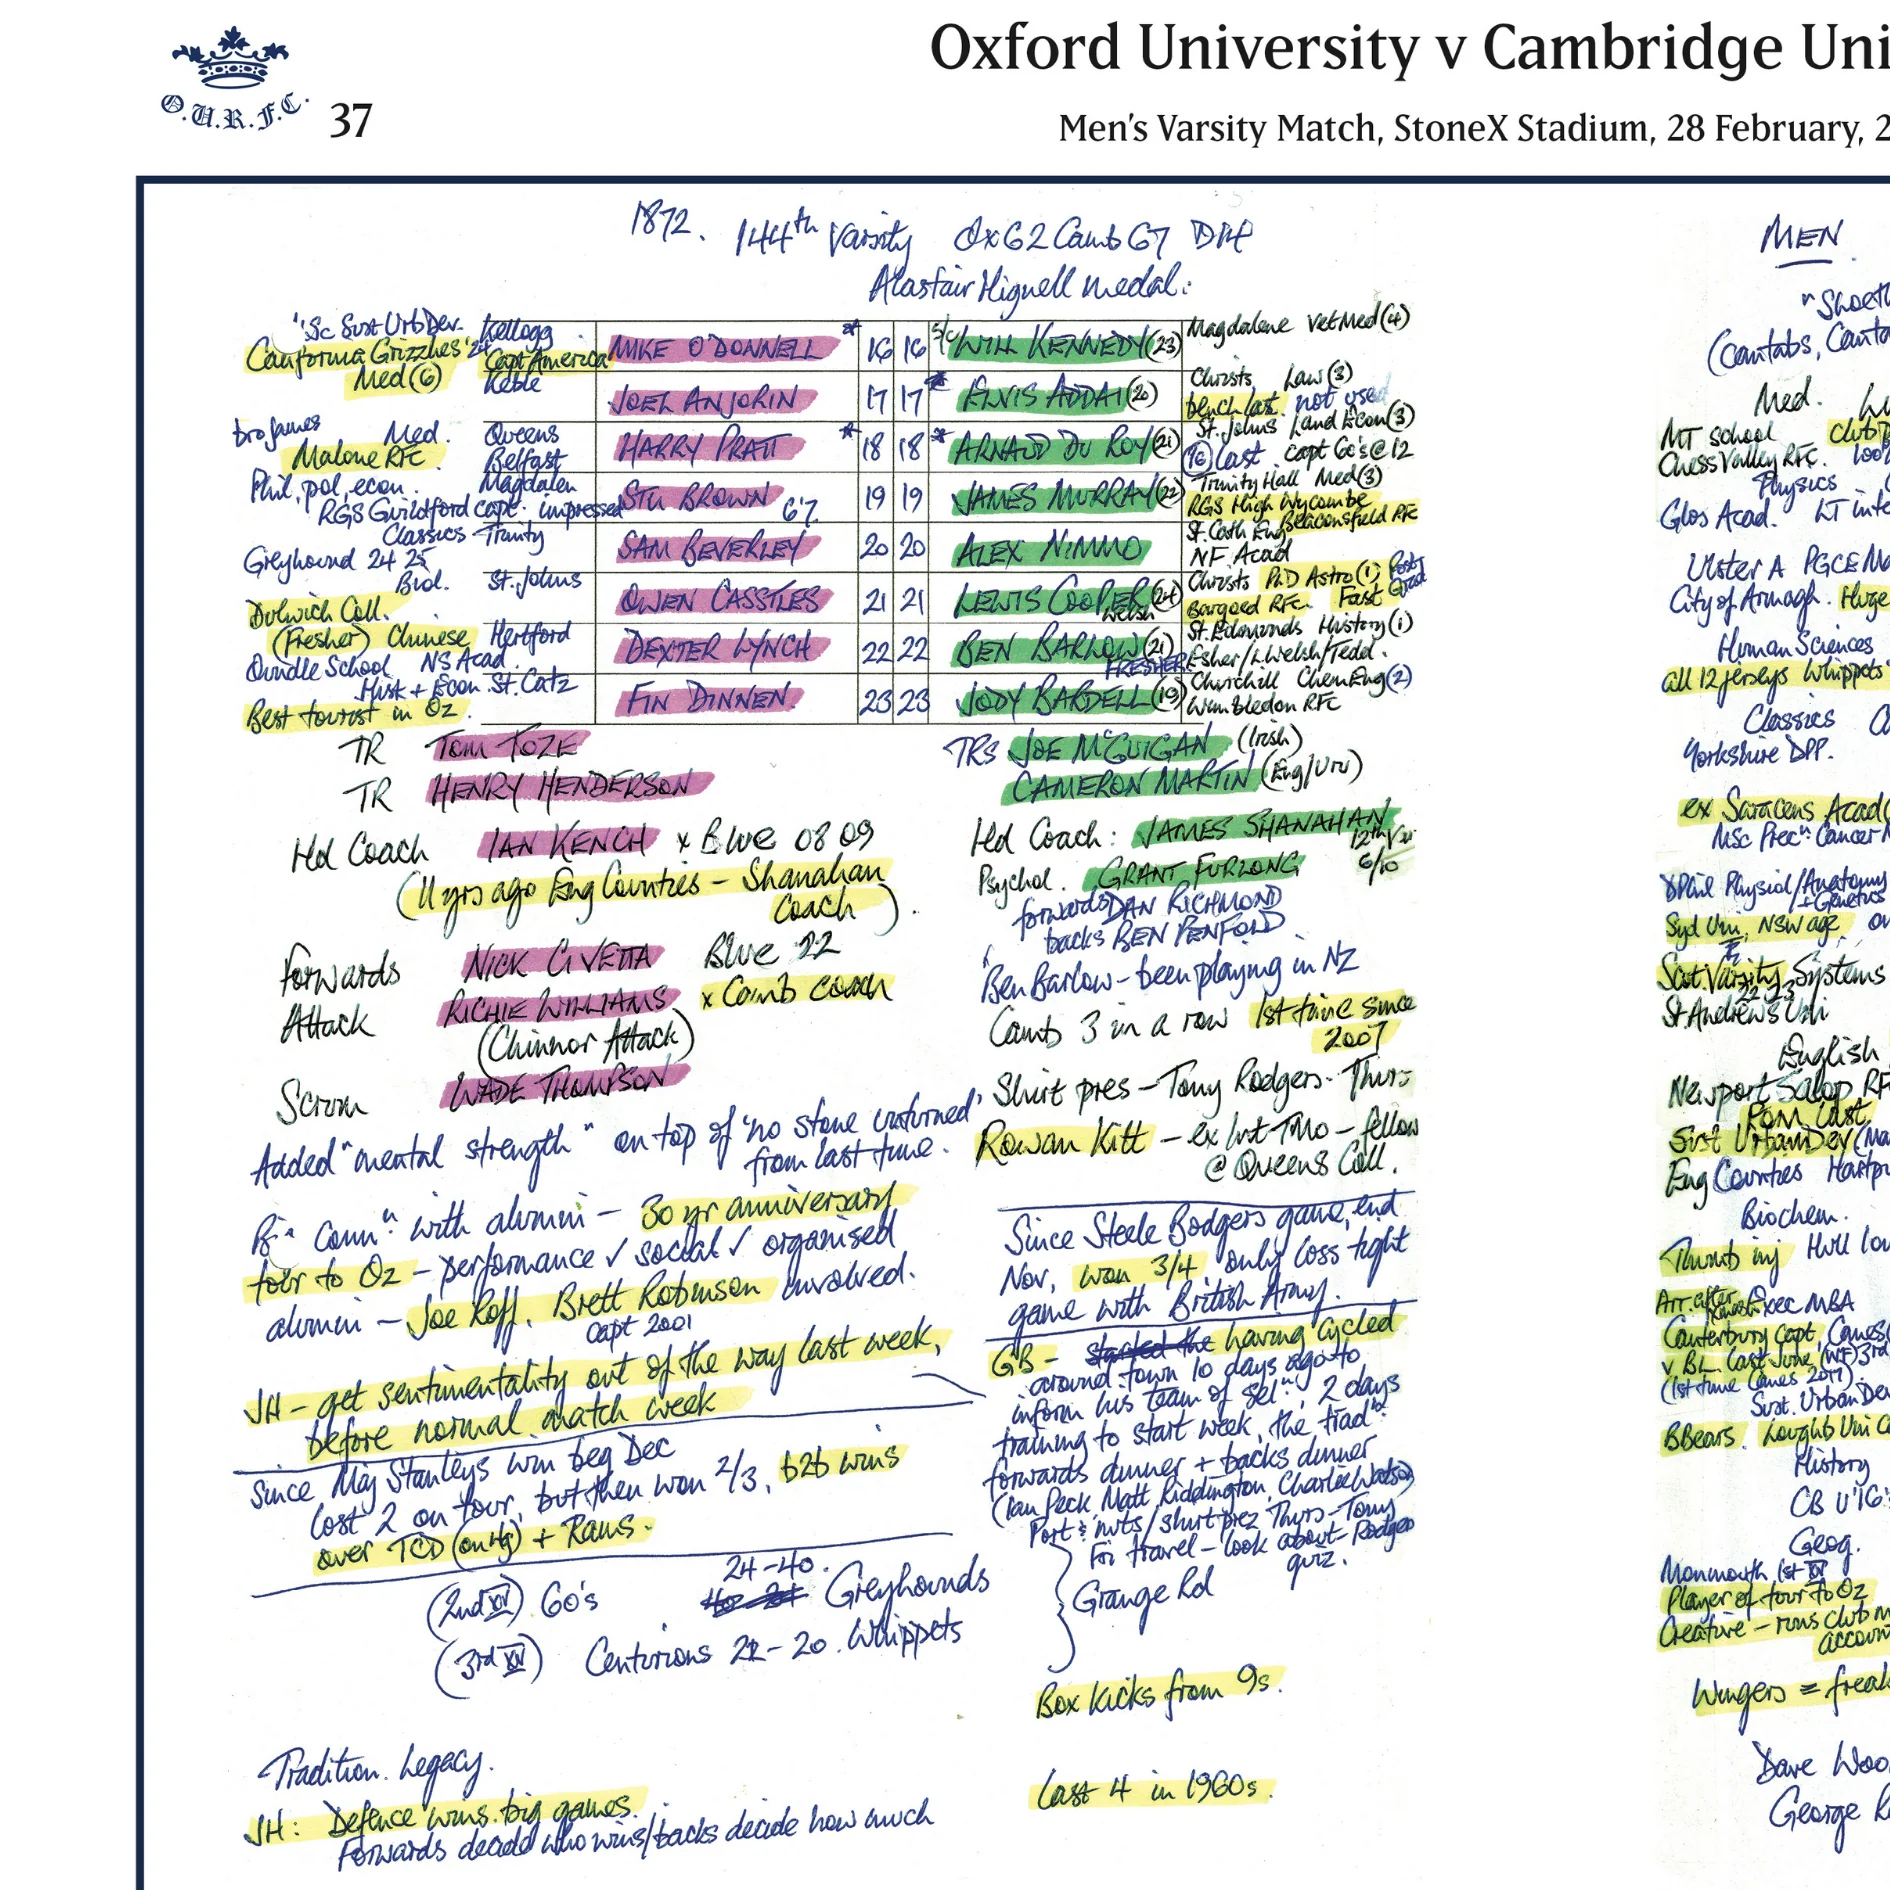 Oxford University v Cambridge Uni
O.U.R.F.C. 37
Men's Varsity Match, StoneX Stadium, 28 February, 2
1872. 144th Varsity Ox 62 Camb 67 D14
Alastair Hignell medal:
"Sc Sust Urb Dev. Kellogg
California Grizzlies '24 "Capt America
MIKE O'DONNELL * 16 16 s/c WILL KENNEDY (23) Magdalene Vet Med (4)
Med (6) Keble
JOEL ANJORIN 17 17 * ELVIS ADDAI (20) Christs Law (3)
bench last. not used
bro James Med. Queens
Malone RFC Belfast
HARRY PRATT * 18 18 * ARNAUD DU ROY (21) St. Johns Land Econ (3)
(16) last. capt 60's @ 12
Phil, pol, econ. Magdalen
RGS Guildford capt. impressed
STU BROWN 6'7 19 19 JAMES MURRAY (22) Trinity Hall Med (3)
RGS High Wycombe
Beaconsfield RFC
Classics Trinity
Greyhound 24 25
SAM BEVERLEY 20 20 ALEX NIMMO St. Cath Eng
NF. Acad
Biol. St. Johns
Dulwich Coll.
OWEN CASSTLES 21 21 LEWIS COOPER (24) Welsh Christs PhD Astro (1) Post Grad
Bargoed RFC. Fast
(Fresher) Chinese Hertford
Oundle School NS Acad.
DEXTER LYNCH 22 22 BEN BARLOW (21) FRESHER St. Edmunds History (1)
Esher/L.Welsh/Tedd.
Hist + Econ St. Catz
Best tourist in Oz.
FIN DINNEN. 23 23 JODY BARDELL (19) Churchill Chem Eng (2)
Wimbledon RFC
TR TOM TOZE
TR HENRY HENDERSON
Hd Coach IAN KENCH x Blue 08 09
(11 yrs ago Eng Counties – Shanahan
Coach).
Forwards NICK CIVETTA Blue 22
Attack RICHIE WILLIAMS x Camb coach
(Chinnor Attack)
Scrum WADE THOMPSON
Added "mental strength" on top of 'no stone unturned'
from last time.
comn" with alumni – 30 yr anniversary
tour to Oz – performance ✓ social ✓ organised
alumni – Joe Roff, Brett Robinson involved.
capt 2001
JH – get sentimentality out of the way last week,
before normal match week
Since Maj Stanleys win beg Dec
lost 2 on tour, but then won 2/3, b2b wins
over TCD + Rams.
(2nd XV) 60's 24-40. Greyhounds
(3rd XV) Centurions 22-20. Whippets
Tradition. Legacy.
JH: Defence wins big games.
Forwards decide who wins/backs decide how much
TRs JOE McGUIGAN (Irish)
CAMERON MARTIN
Hd Coach: JAMES SHANAHAN
12th
6/10
Psychol. GRANT FURLONG
forwards DAN RICHMOND
backs BEN PENFOLD
Ben Barlow – been playing in NZ
Camb 3 in a row 1st time since
2007
Shirt pres – Tony Rodgers. Thurs
Rowan Kitt – ex Int TMO – fellow
@ Queens Coll.
Since Steele Bodgers game, end
Nov, won 3/4 only loss tight
game with British Army.
GB – having cycled
around town 10 days ago to
inform his team of seln, 2 days
training to start week, the tradn
forwards dinner + backs dinner
(Ian Peck, Matt Riddington, Charlie Watson)
Port & nuts/shirt prez Thurs – Tony
Rodgers
Fri travel – look about
quiz.
Grange Rd
Box kicks from 9s.
Last 4 in 1960s.
MEN
"Shoeth
(Cantabs, Canta
Med.
MT school club
Chess Valley RFC. 100
Physics
Glos Acad. LT inte
Ulster A PGCE Ma
City of Armagh. Huge
Human Sciences
all 12 jerseys Whippets
Classics
Yorkshire DPP.
ex Saracens Acad
MSc Precn Cancer
DPhil Physiol/Anatomy
+ Genetics
Syd Uni, NSW age
Scot Varsity Systems
22 23
St. Andrews Uni
English
Newport Salop RF
POM last.
Sust Urban Dev (Ma
Eng Counties Hartpu
Biochem.
Thumb inj Hull
Arr. after Exec MBA
Canterbury Capt, Canes
v BL last June (NF) 3rd
(1st time Canes 2017).
Sust. Urban Dev
BBears. Loughb Uni
History
CB U'16
Geog.
Monmouth 1st XV
Player of tour to Oz
Creative – runs club m
account
Wingers = freak
Dave Woo
George